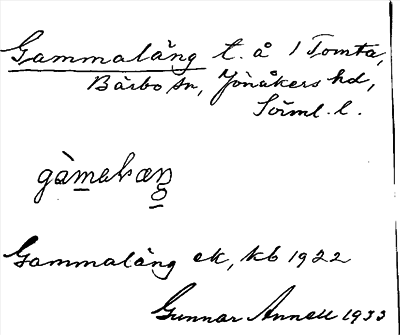 Gammaläng t. å 1 Tomta,
Bärbo sn, Jönåkers hd,
Sörml. l.
gàmalæŋ
Gammaläng ek, kb 1922
Gunnar Annell 1933